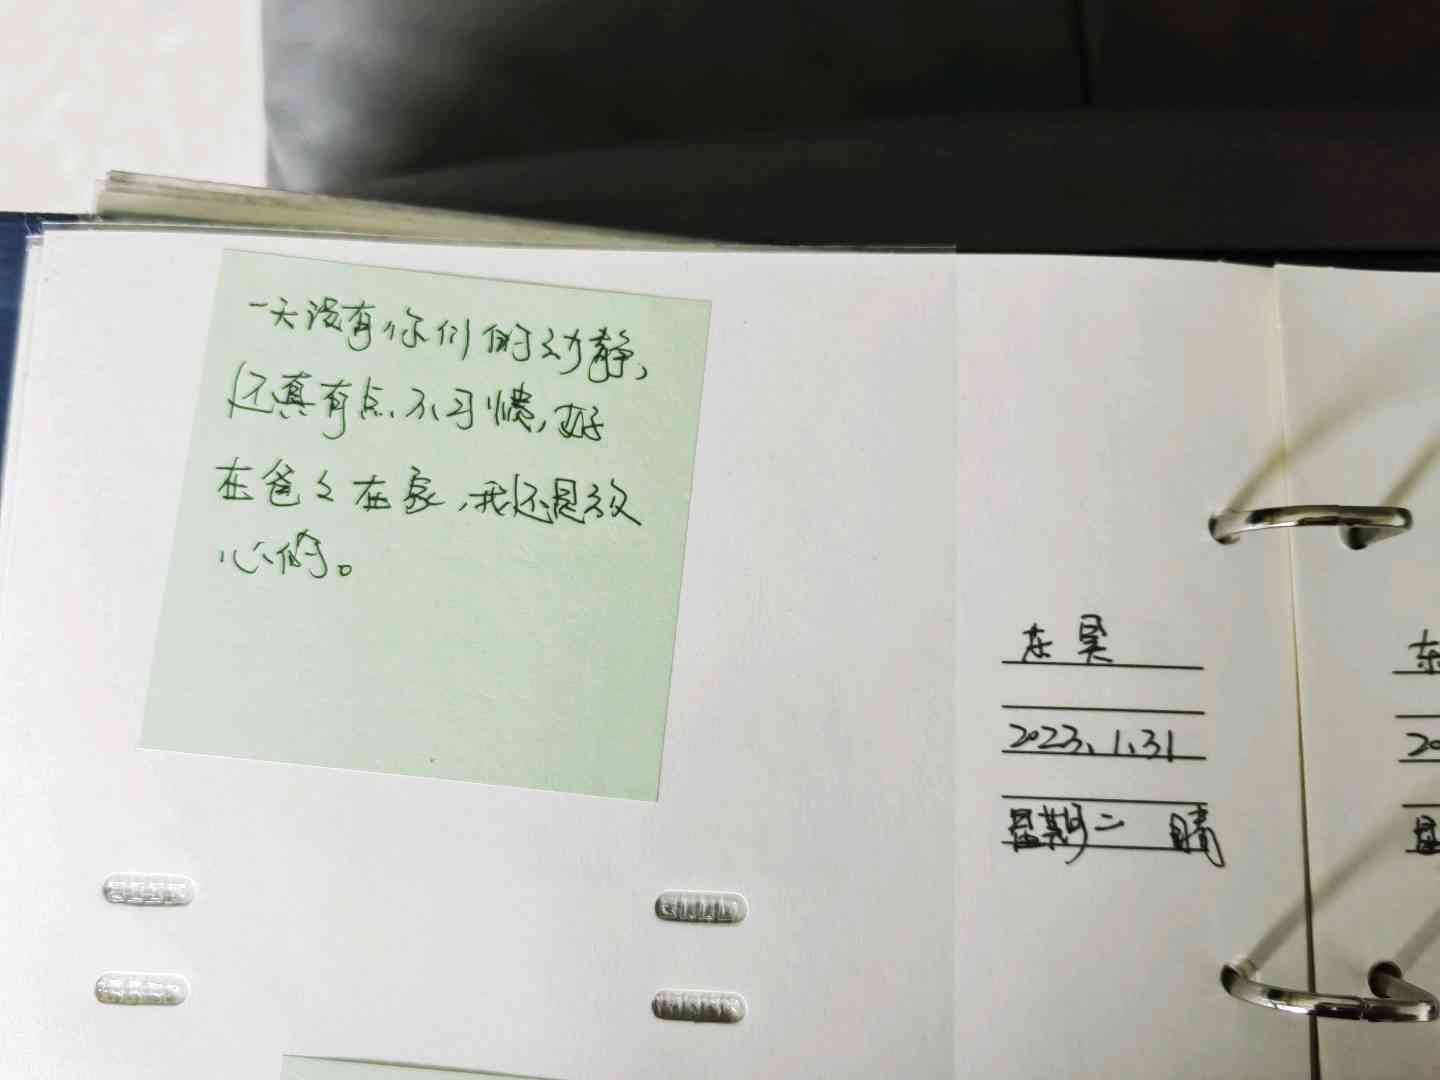 一天没有你们的动静,
还真有点不习惯,好
在爸々在家,我还是放
心的。
东昊
2023.1.31
星期二 晴
东
20